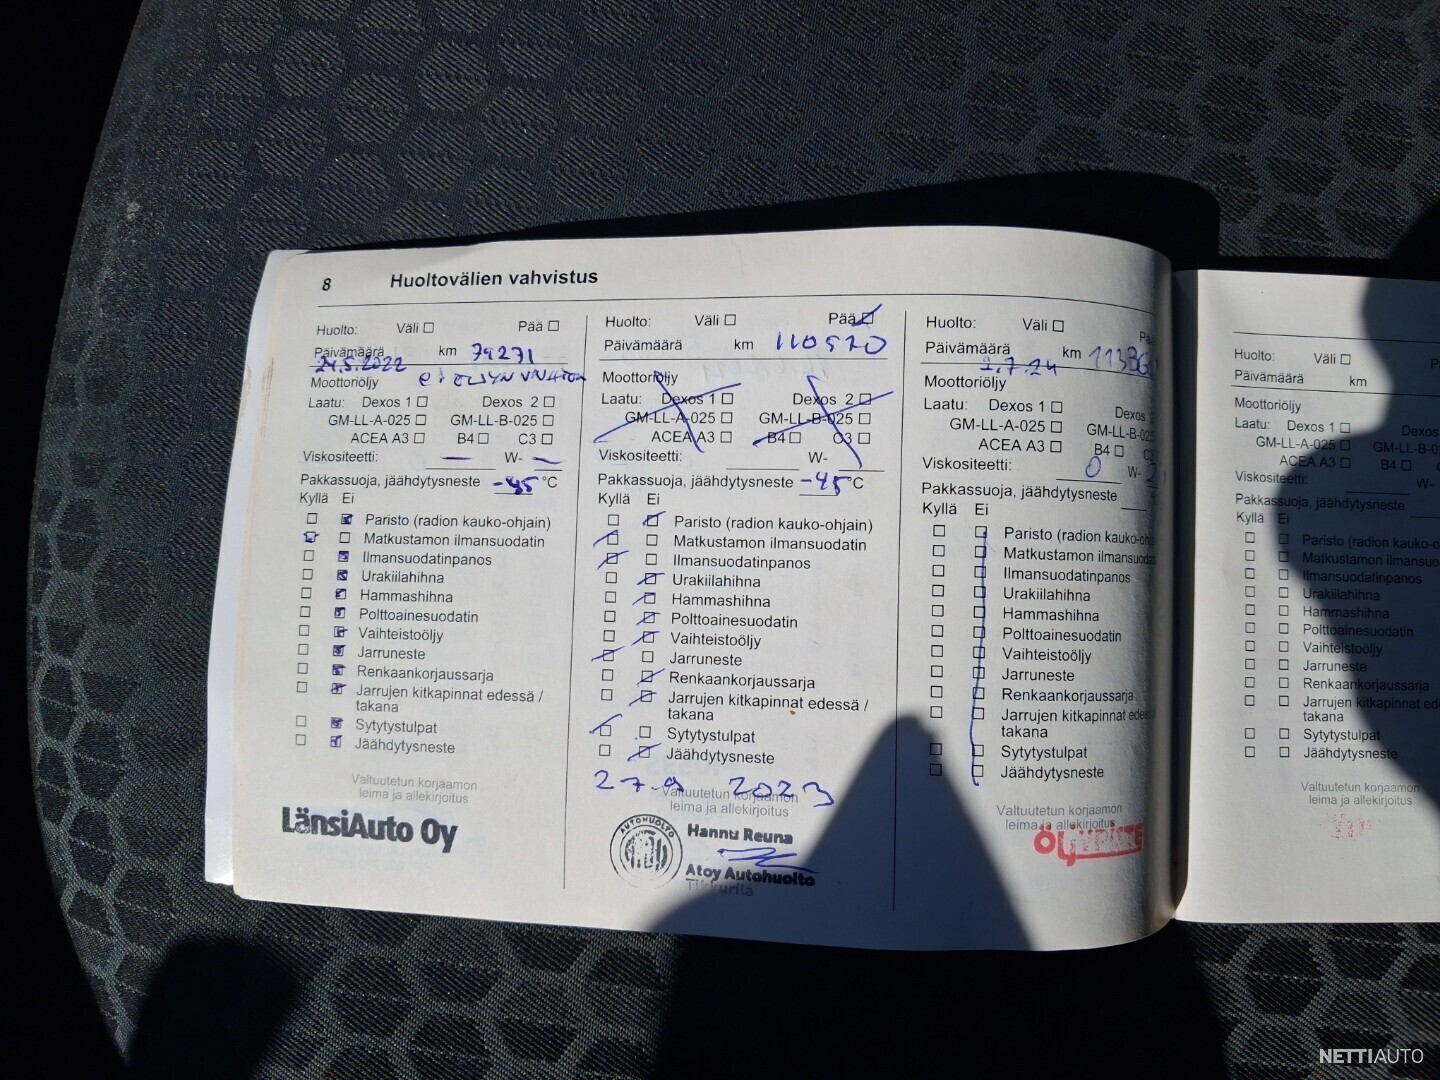 8 Huoltovälien vahvistus
Huolto: Väli Pää
Päivämäärä km 79271
24.5.2022
Moottoriöljy
Laatu: Dexos 1 Dexos 2
GM-LL-A-025 GM-LL-B-025
ACEA A3 B4 C3
Viskositeetti: — W- —
Pakkassuoja, jäähdytysneste -45 °C
Kyllä Ei
Paristo (radion kauko-ohjain)
Matkustamon ilmansuodatin
Ilmansuodatinpanos
Urakiilahihna
Hammashihna
Polttoainesuodatin
Vaihteistoöljy
Jarruneste
Renkaankorjaussarja
Jarrujen kitkapinnat edessä /
takana
Sytytystulpat
Jäähdytysneste
Valtuutetun korjaamon
leima ja allekirjoitus
LänsiAuto Oy
Huolto: Väli Pää
Päivämäärä km 110520
Moottoriöljy
Laatu: Dexos 1 Dexos 2
GM-LL-A-025 GM-LL-B-025
ACEA A3 B4 C3
Viskositeetti: W-
Pakkassuoja, jäähdytysneste -45 °C
Kyllä Ei
Paristo (radion kauko-ohjain)
Matkustamon ilmansuodatin
Ilmansuodatinpanos
Urakiilahihna
Hammashihna
Polttoainesuodatin
Vaihteistoöljy
Jarruneste
Renkaankorjaussarja
Jarrujen kitkapinnat edessä /
takana
Sytytystulpat
Jäähdytysneste
27.9 2023
Valtuutetun korjaamon
leima ja allekirjoitus
AUTOHUOLTO
Hannu Reuna
Atoy Autohuolto
Tikkurila
Huolto: Väli
Päivämäärä km
2.7.24
Moottoriöljy
Laatu: Dexos 1 Dexos 2
GM-LL-A-025 GM-LL-B-025
ACEA A3 B4
Viskositeetti: 0 W-
Pakkassuoja, jäähdytysneste
Kyllä Ei
Paristo (radion
Matkustamon
Ilmansuodatinpanos
Urakiilahihna
Hammashihna
Polttoainesuodatin
Vaihteistoöljy
Jarruneste
Renkaankorjaussarja
Jarrujen kitkapinnat
takana
Sytytystulpat
Jäähdytysneste
Valtuutetun korjaamon
leima ja allekirjoitus
Huolto: Väli
Päivämäärä km
Moottoriöljy
Laatu: Dexos 1 Dexos
GM-LL-A-025
ACEA A3 B4
Viskositeetti: W-
Pakkassuoja, jäähdytysneste
Kyllä Ei
Paristo (radion
Matkustamon
Ilmansuodatinpanos
Urakiilahihna
Hammashihna
Polttoainesuodatin
Vaihteistoöljy
Jarruneste
Renkaankorjaussarja
Jarrujen kitkapinnat
takana
Sytytystulpat
Jäähdytysneste
Valtuutetun korjaamon
leima ja allekirjoitus
NETTIAUTO